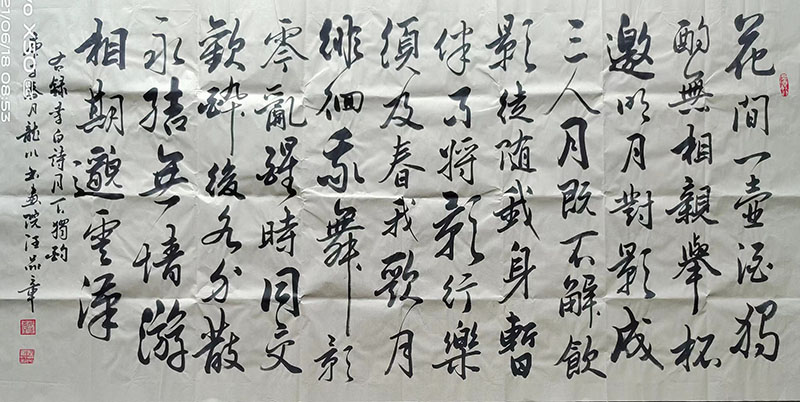 花間一壺酒獨
酌無相親舉杯
邀明月對影成
三人月既不解飲
影徒随我身暫
伴月將影行樂
須及春我歌月
徘徊我舞影
零亂醒時同交
歡醉後各分散
永結無情游
相期邈雲漢
右録李白詩月下獨酌
月龍川书畫院汪品章
vo X30
21/06/18 08:53